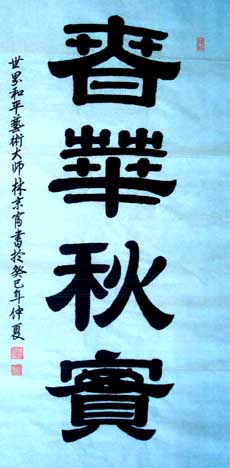 春華秋實
世界和平藝術大师林京窅書於癸巳年仲夏